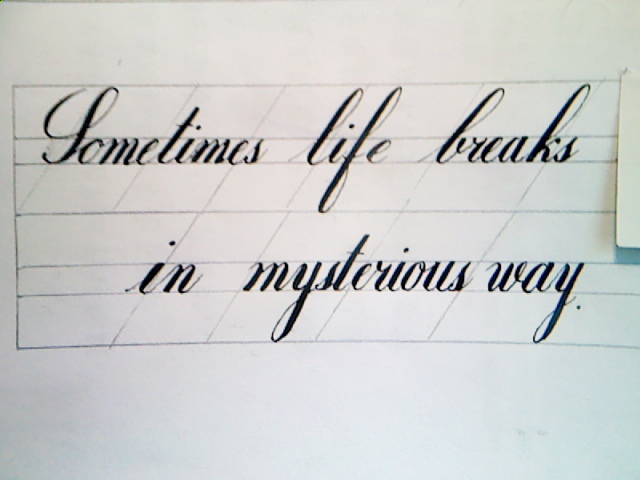 Sometimes life breaks
in mysterious way.